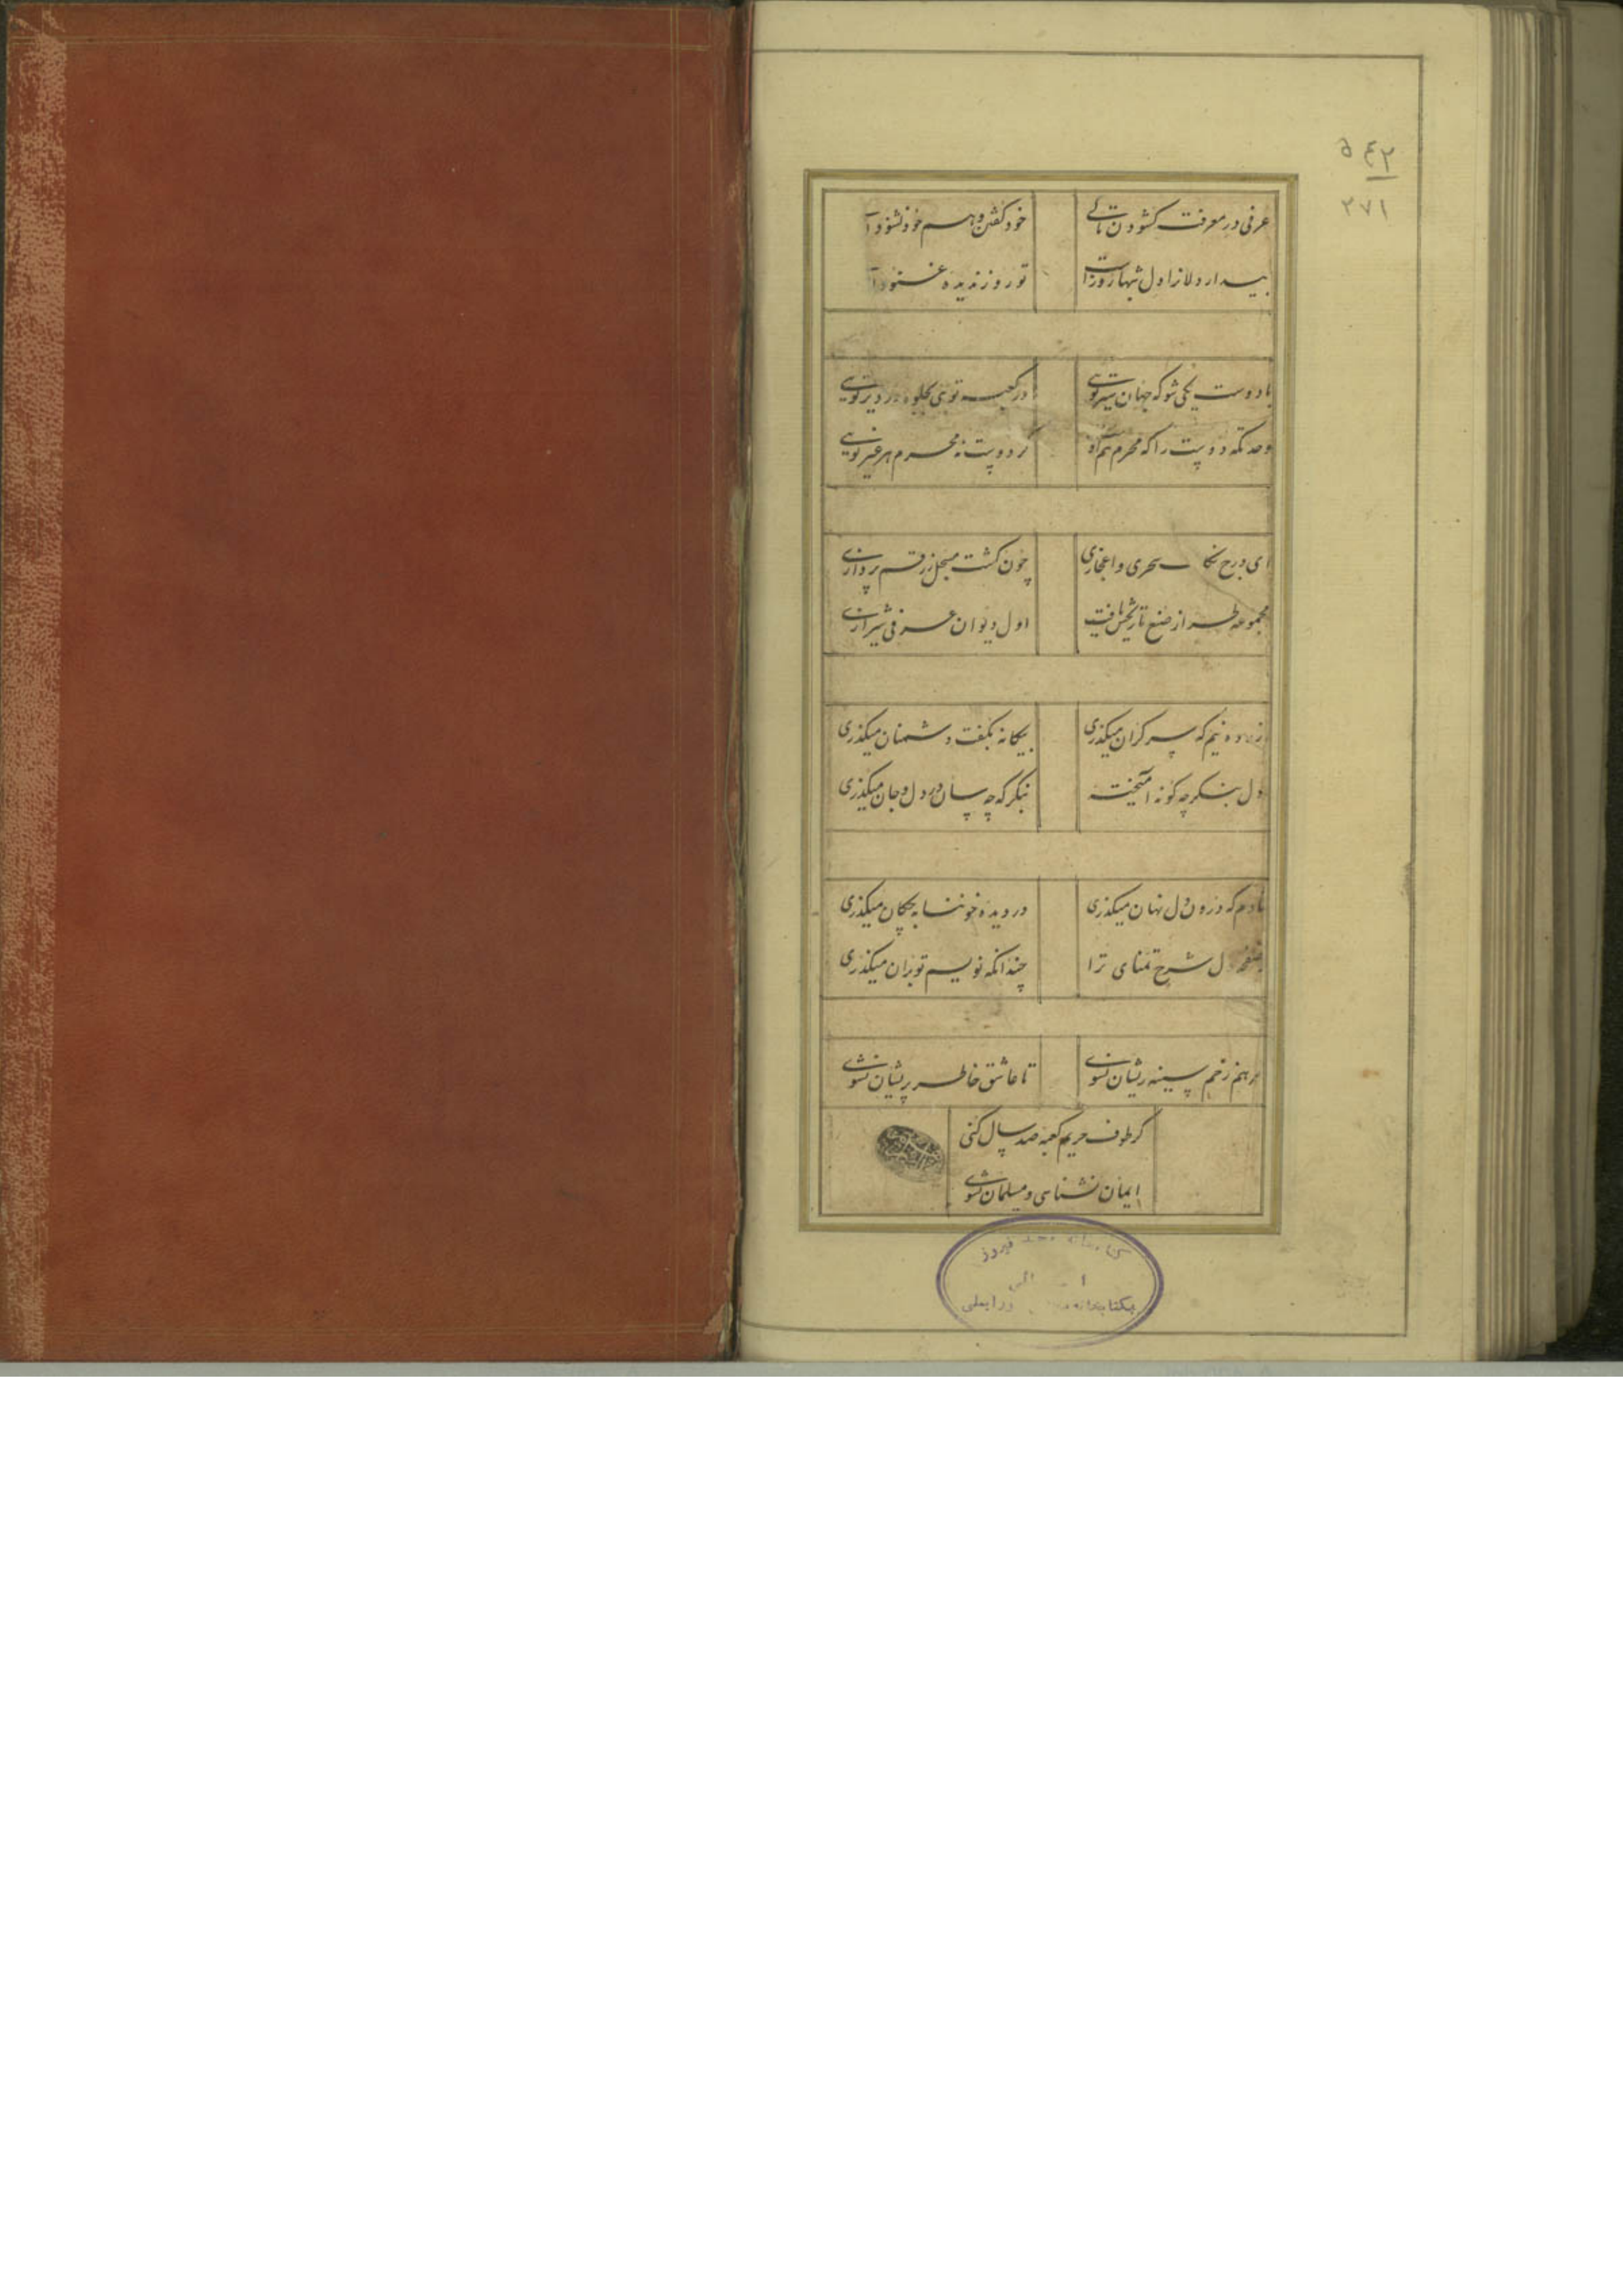 ۵۴۲
۲۷۱
عرفی در معرفت کشودن تا کی خود کفتن و هم خود شنودن
بیدار دلانرا دل شبها روز است تو روز ندیده غنودن
با دوست یکی شو که جهان سیر توئی در کعبه توئی بجلوه در دیر توئی
وحدتکه دوست را که محرم هم اوست کر دوست نه محرم هر غیر توئی
ای درج سحری و اعجازی چون کشت مسجل ز رقم پردازی
مجموعه طراز صنع تاریخش یافت اول دیوان عرفی شیرازی
نیم که سر کران میکذری بیکانه بکفت دشمنان میکذری
دل بنکر چه کونه آمیخته بنکر که چه سان در دل و جان میکذری
شادم که درون دل نهان میکذری در دیده خوننابه چکان میکذری
بر صفحه دل شرح تمنای ترا چندانکه نویسم تو بران میکذری
مرهم زخم سینه ریشان نشوی تا عاشق خاطر پریشان نشوی
کر طوف حریم کعبه صد سال کنی
ایمان نشناسی و مسلمان نشوی
فیروز
بکتابخانه